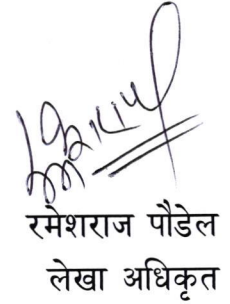 रमेशराज पौडेल
लेखा अधिकृत